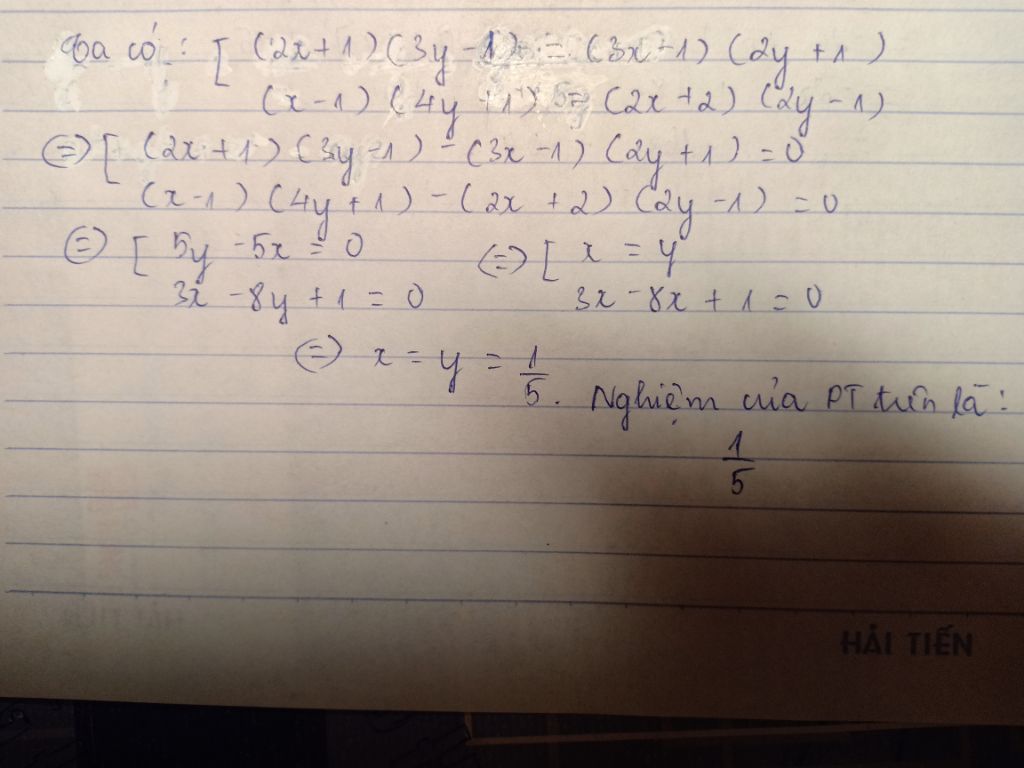 Ta có : [ (2x+1)(3y-1) = (3x-1)(2y+1)
(x-1)(4y+1) = (2x+2)(2y-1)
(=) [ (2x+1)(3y-1) - (3x-1)(2y+1) = 0
(x-1)(4y+1) - (2x+2)(2y-1) = 0
(=) [ 5y - 5x = 0 (=) [ x = y
3x - 8y + 1 = 0 3x - 8x + 1 = 0
(=) x = y = 1/5. Nghiệm của PT trên là :
1/5
HẢI TIẾN